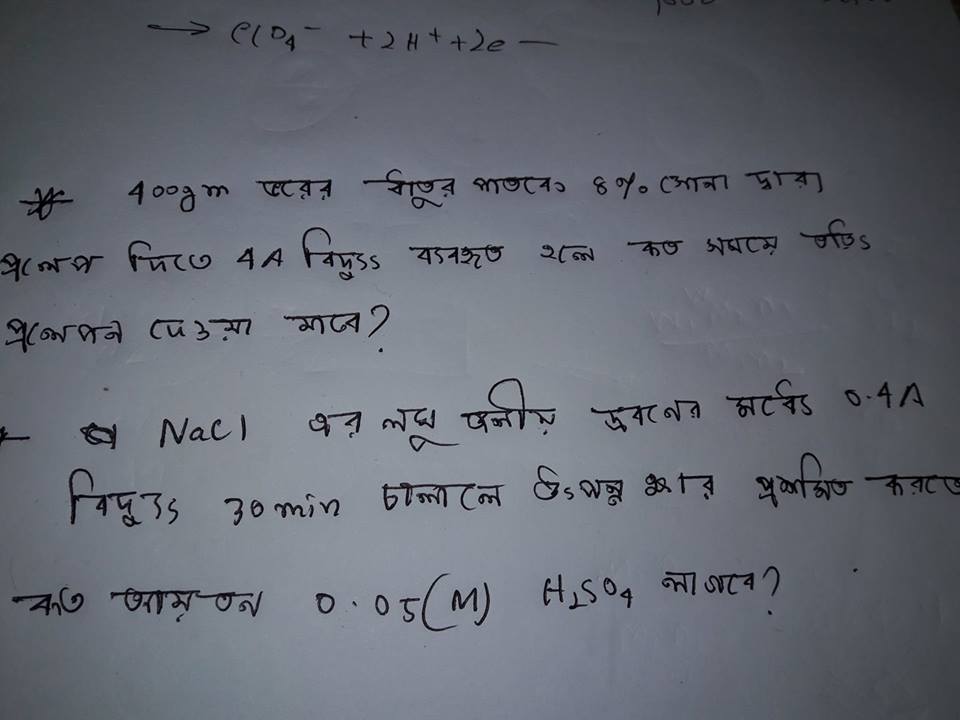 → ClO4⁻ + 2H⁺ + 2e —
* 400gm ভরের ধাতুর পাতকে ৪% সোনা দ্বারা
প্রলেপ দিতে 4A বিদুৎ ব্যবহৃত হলে কত সময়ে তড়িৎ
প্রলেপন দেওয়া যাবে?
NaCl এর লঘু জলীয় দ্রবনের মধ্যে 0.4A
বিদুৎ 30min চালালে উৎপন্ন ক্ষার প্রশমিত করতে
কত আয়তন 0.05(M) H2SO4 লাগবে?